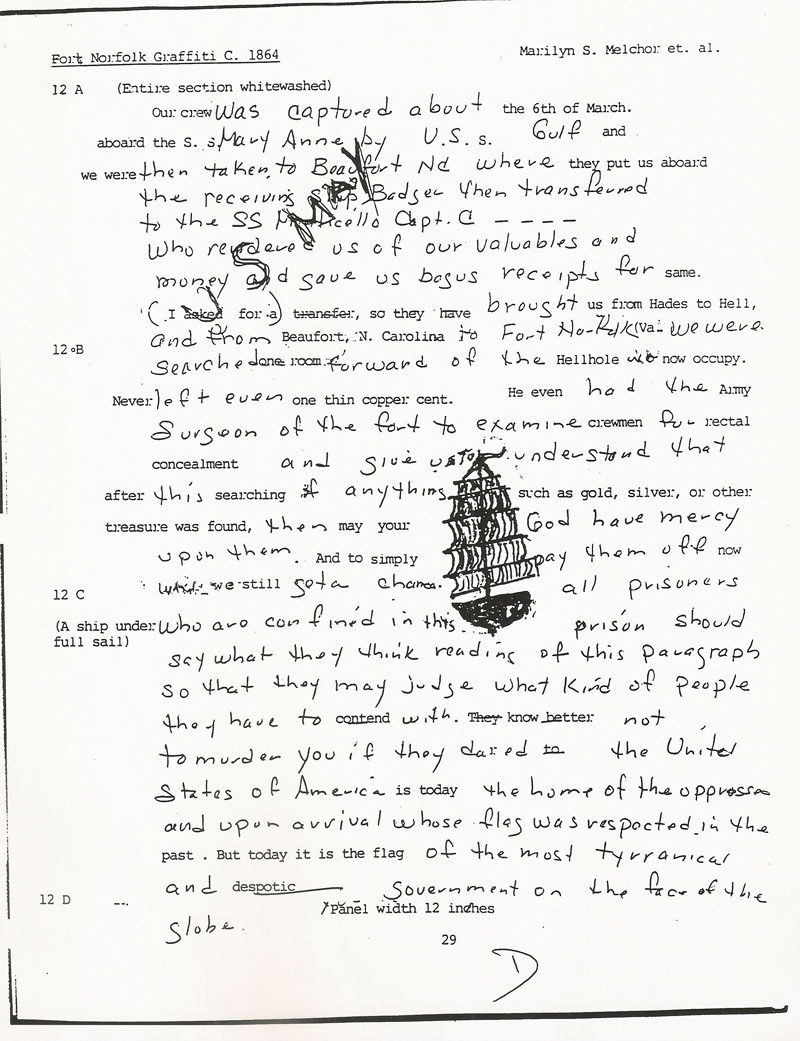 Fort Norfolk Graffiti C. 1864
Marilyn S. Melchor et. al.
12 A (Entire section whitewashed)
Our crew was captured about the 6th of March.
aboard the S. s. Mary Anne by U.S. s. Gulf and
we were then taken to Beaufort Nd where they put us aboard
the receiving ship Badger then transferred
to the SS Monticello Capt. C - - - -
Who us of our valuables and
money and gave us bogus receipts for same.
(I asked for a) transfer, so they have brought us from Hades to Hell,
and from Beaufort, N. Carolina to Fort No-Folk (Va. We were
12 B searched one room forward of the Hellhole we now occupy.
Never left even one thin copper cent. He even had the Army
Surgeon of the fort to examine crewmen for rectal
concealment and give us to understand that
after this searching if anything such as gold, silver, or other
treasure was found, then may your God have mercy
upon them. And to simply pay them off now
while we still got a chance. all prisoners
12 C
(A ship under full sail)
Who are confined in this prison should
say what they think reading of this paragraph
so that they may judge what kind of people
they have to contend with. They know better not
to murder you if they dared to the United
States of America is today the home of the oppresse
and upon arrival whose flag was respected in the
past . But today it is the flag of the most tyrranical
and despotic government on the face of the
12 D ---
Panel width 12 inches
globe.
29
D